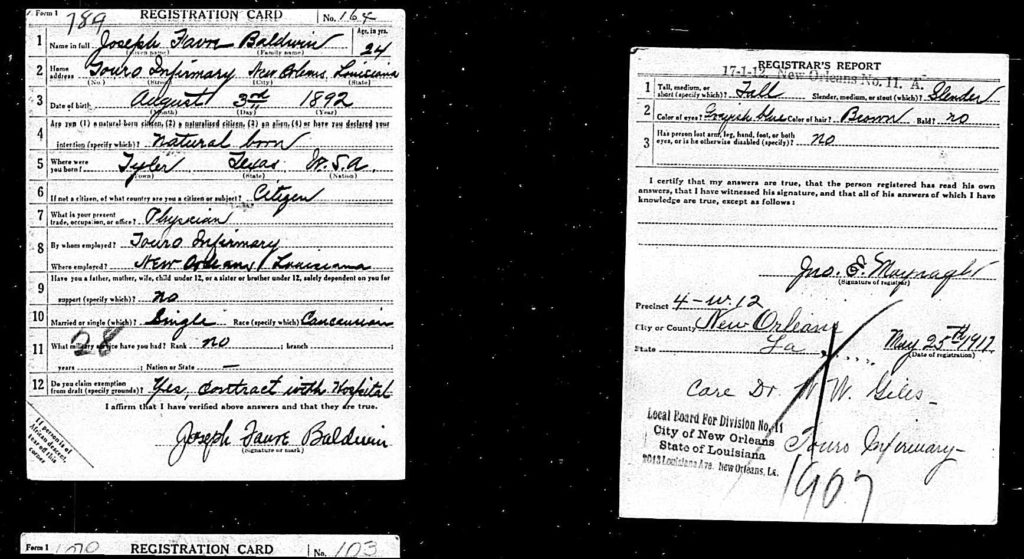 Form 1 789 REGISTRATION CARD No. 164
1 Name in full Joseph Favre Baldwin Age, in yrs. 24
(Given name) (Family name)
2 Home address Touro Infirmary New Orleans Louisiana
(No.) (Street) (City) (State)
3 Date of birth August 3rd 1892
(Month) (Day) (Year)
4 Are you (1) a natural born citizen, (2) a naturalized citizen, (3) an alien, (4) or have you declared your
intention (specify which)? Natural born
5 Where were you born? Tyler Texas U.S.A.
(Town) (State) (Nation)
6 If not a citizen, of what country are you a citizen or subject? Citizen
7 What is your present trade, occupation, or office? Physician
8 By whom employed? Touro Infirmary
Where employed? New Orleans, Louisiana
9 Have you a father, mother, wife, child under 12, or a sister or brother under 12, solely dependent on you for
support (specify which)? no
10 Married or single (which)? Single Race (specify which) Cancausian
28
11 What military service have you had? Rank no ; branch ;
years ; Nation or State —
12 Do you claim exemption from draft (specify grounds)? Yes, contract with Hospital
I affirm that I have verified above answers and that they are true.
Joseph Favre Baldwin
(Signature or mark)
If person is of African descent, tear off this corner
Form 1 REGISTRATION CARD No. 103
REGISTRAR'S REPORT
17-1-12. New Orleans No. 11. A.
1 Tall, medium, or short (specify which)? Tall Slender, medium, or stout (which)? Slender
2 Color of eyes? Greyish blue Color of hair? Brown Bald? no
3 Has person lost arm, leg, hand, foot, or both
eyes, or is he otherwise disabled (specify)? no
I certify that my answers are true, that the person registered has read his own
answers, that I have witnessed his signature, and that all of his answers of which I have
knowledge are true, except as follows:
Jno. E.
(Signature of registrar)
Precinct 4-W.12
City or County New Orleans
State La May 25th 1917
(Date of registration)
Care Dr. W. W. Giles
Local Board For Division No. 11
City of New Orleans
State of Louisiana
Louisiana Ave. New Orleans, La.
Touro Infirmary
1907